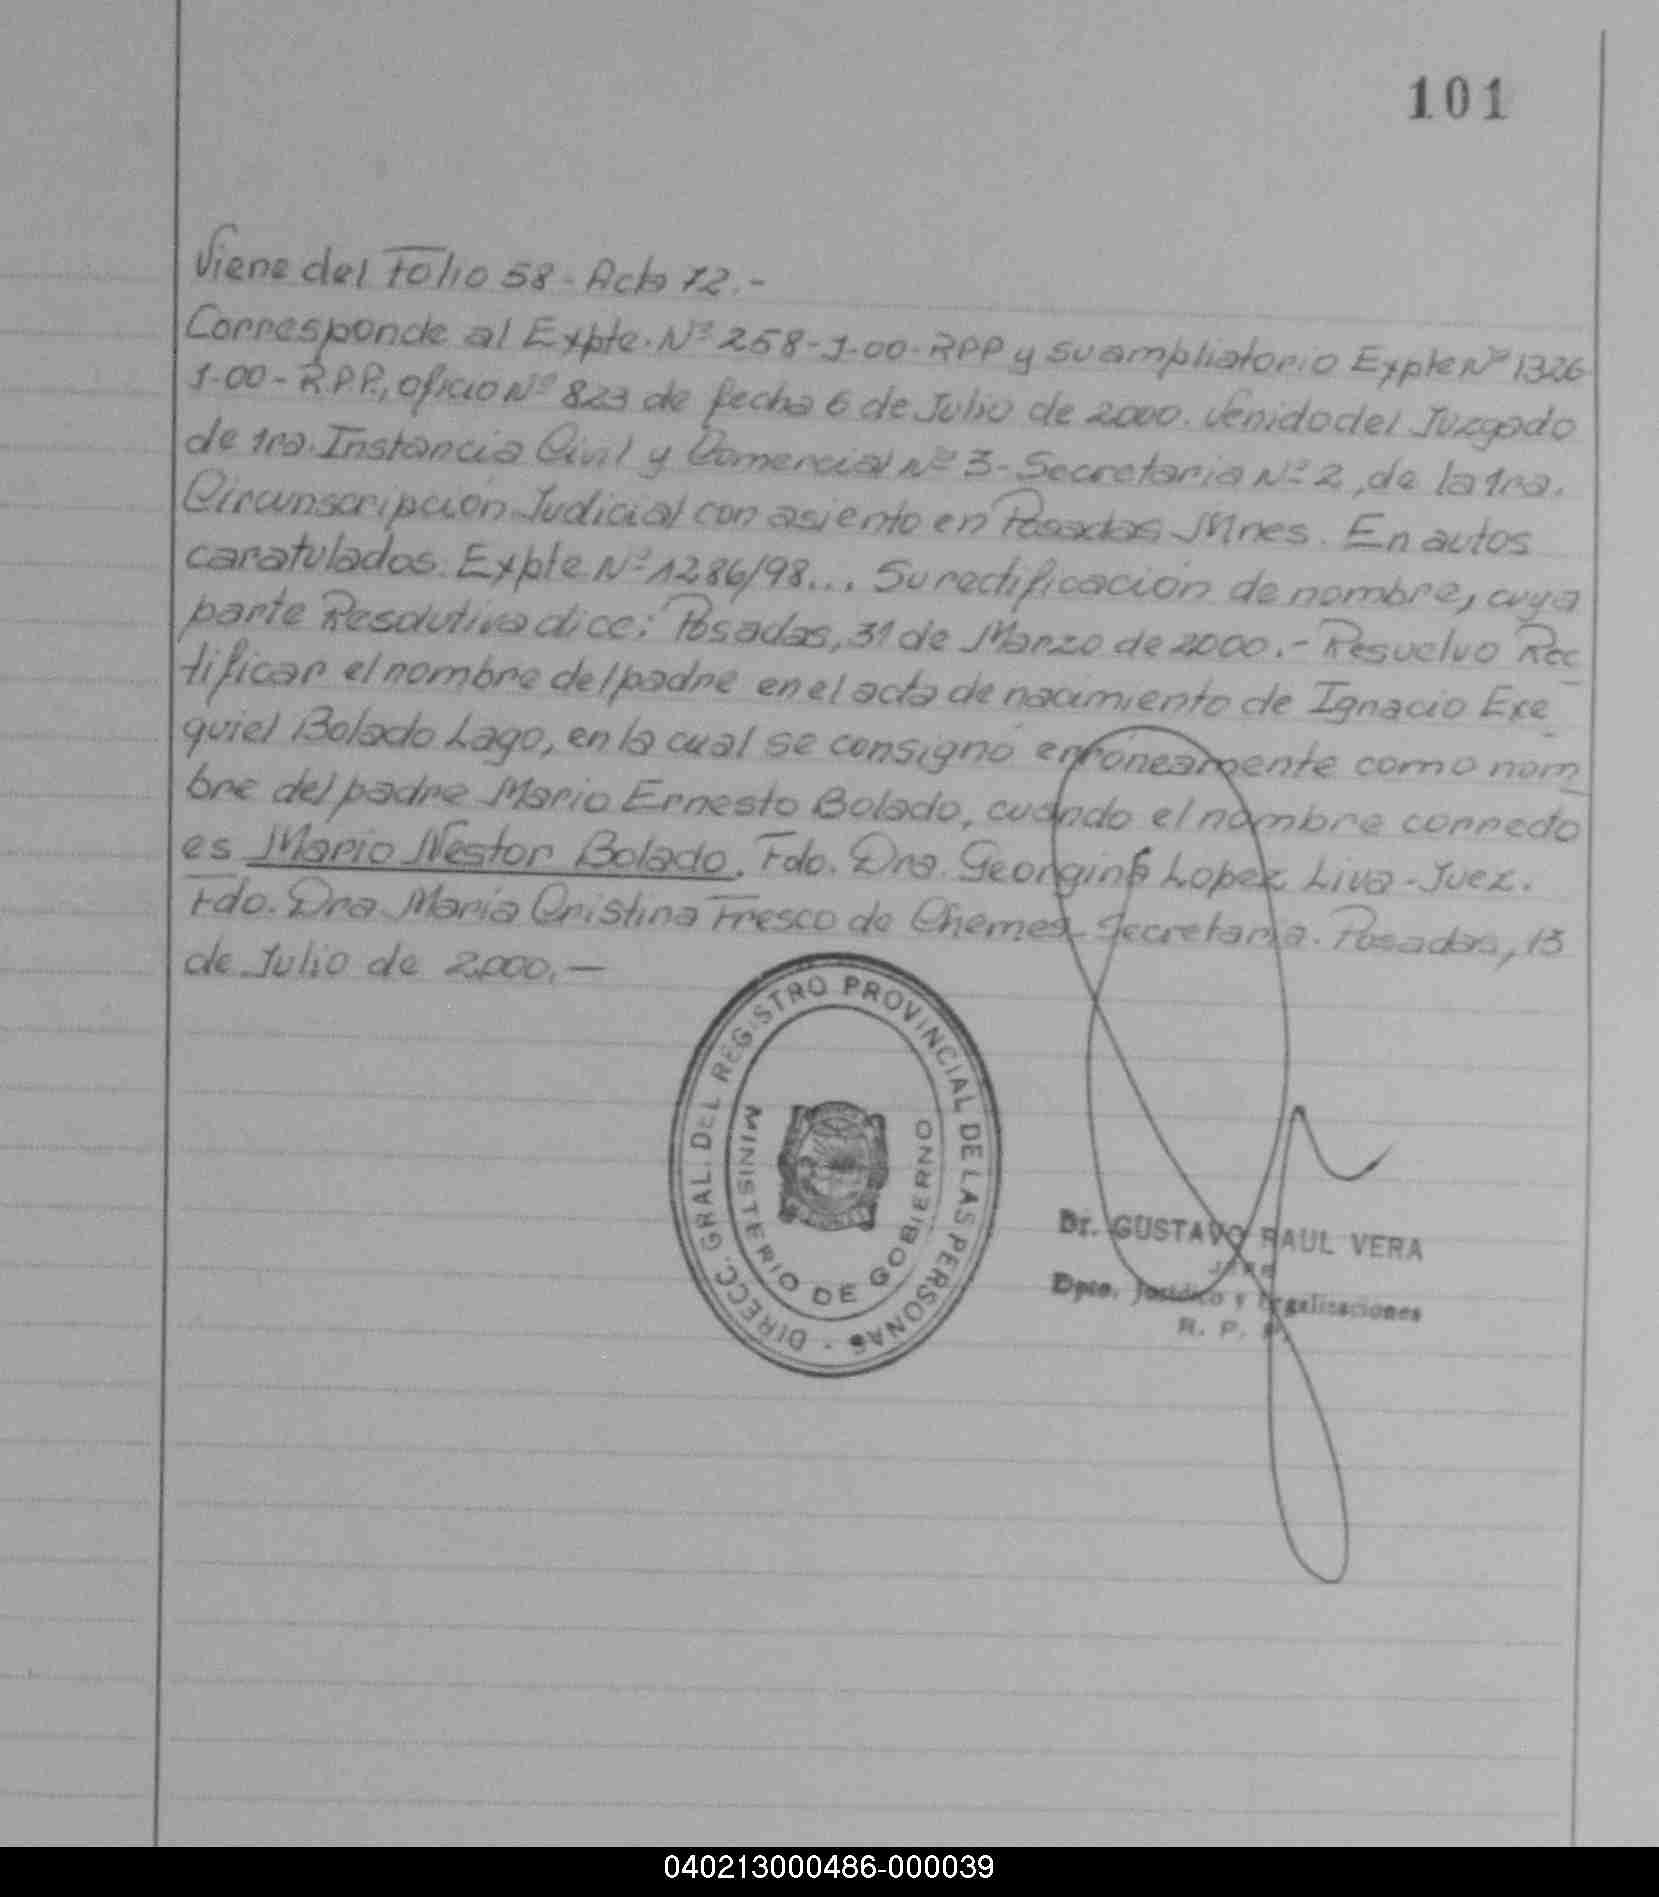 101
Viene del Folio 58 - Acta 72.-
Corresponde al Expte. Nº 258-1-00-RPP y su ampliatorio Expte Nº 1326-
1-00-R.P.P., oficio Nº 823 de fecha 6 de Julio de 2000. Venido del Juzgado
de 1ra. Instancia Civil y Comercial Nº 3 - Secretaria Nº 2, de la 1ra.
Circunscripción Judicial con asiento en Posadas Mnes. En autos
caratulados. Expte Nº 1286/98... Su rectificación de nombre, cuya
parte Resolutiva dice: Posadas, 31 de Marzo de 2000.- Resuelvo Rec
tificar el nombre del padre en el acta de nacimiento de Ignacio Exe
quiel Bolado Lago, en la cual se consignó erróneamente como nom
bre del padre Mario Ernesto Bolado, cuando el nombre correcto
es Mario Nestor Bolado. Fdo. Dra. Georgina Lopez Liva - Juez.
Fdo. Dra. María Cristina Fresco de Chemes Secretaria. Posadas, 13
de Julio de 2000.-
DIRECC. GRAL. DEL REGISTRO PROVINCIAL DE LAS PERSONAS
MINISTERIO DE GOBIERNO
Dr. GUSTAVO RAUL VERA
Jefe
Dpto. Jurídico y Legalizaciones
R. P. P.
040213000486-000039